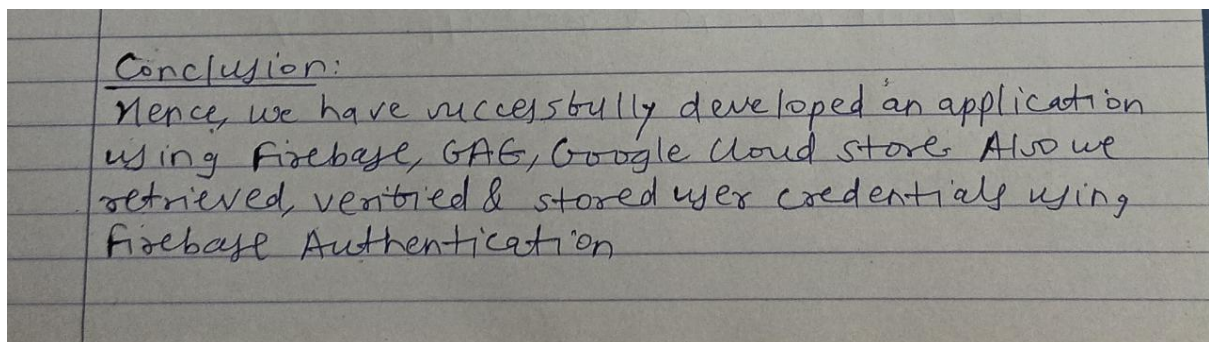 Conclusion:
Hence, we have successfully developed an application
using Firebase, GAE, Google Cloud store. Also we
retrieved, verified & stored user credentials using
Firebase Authentication